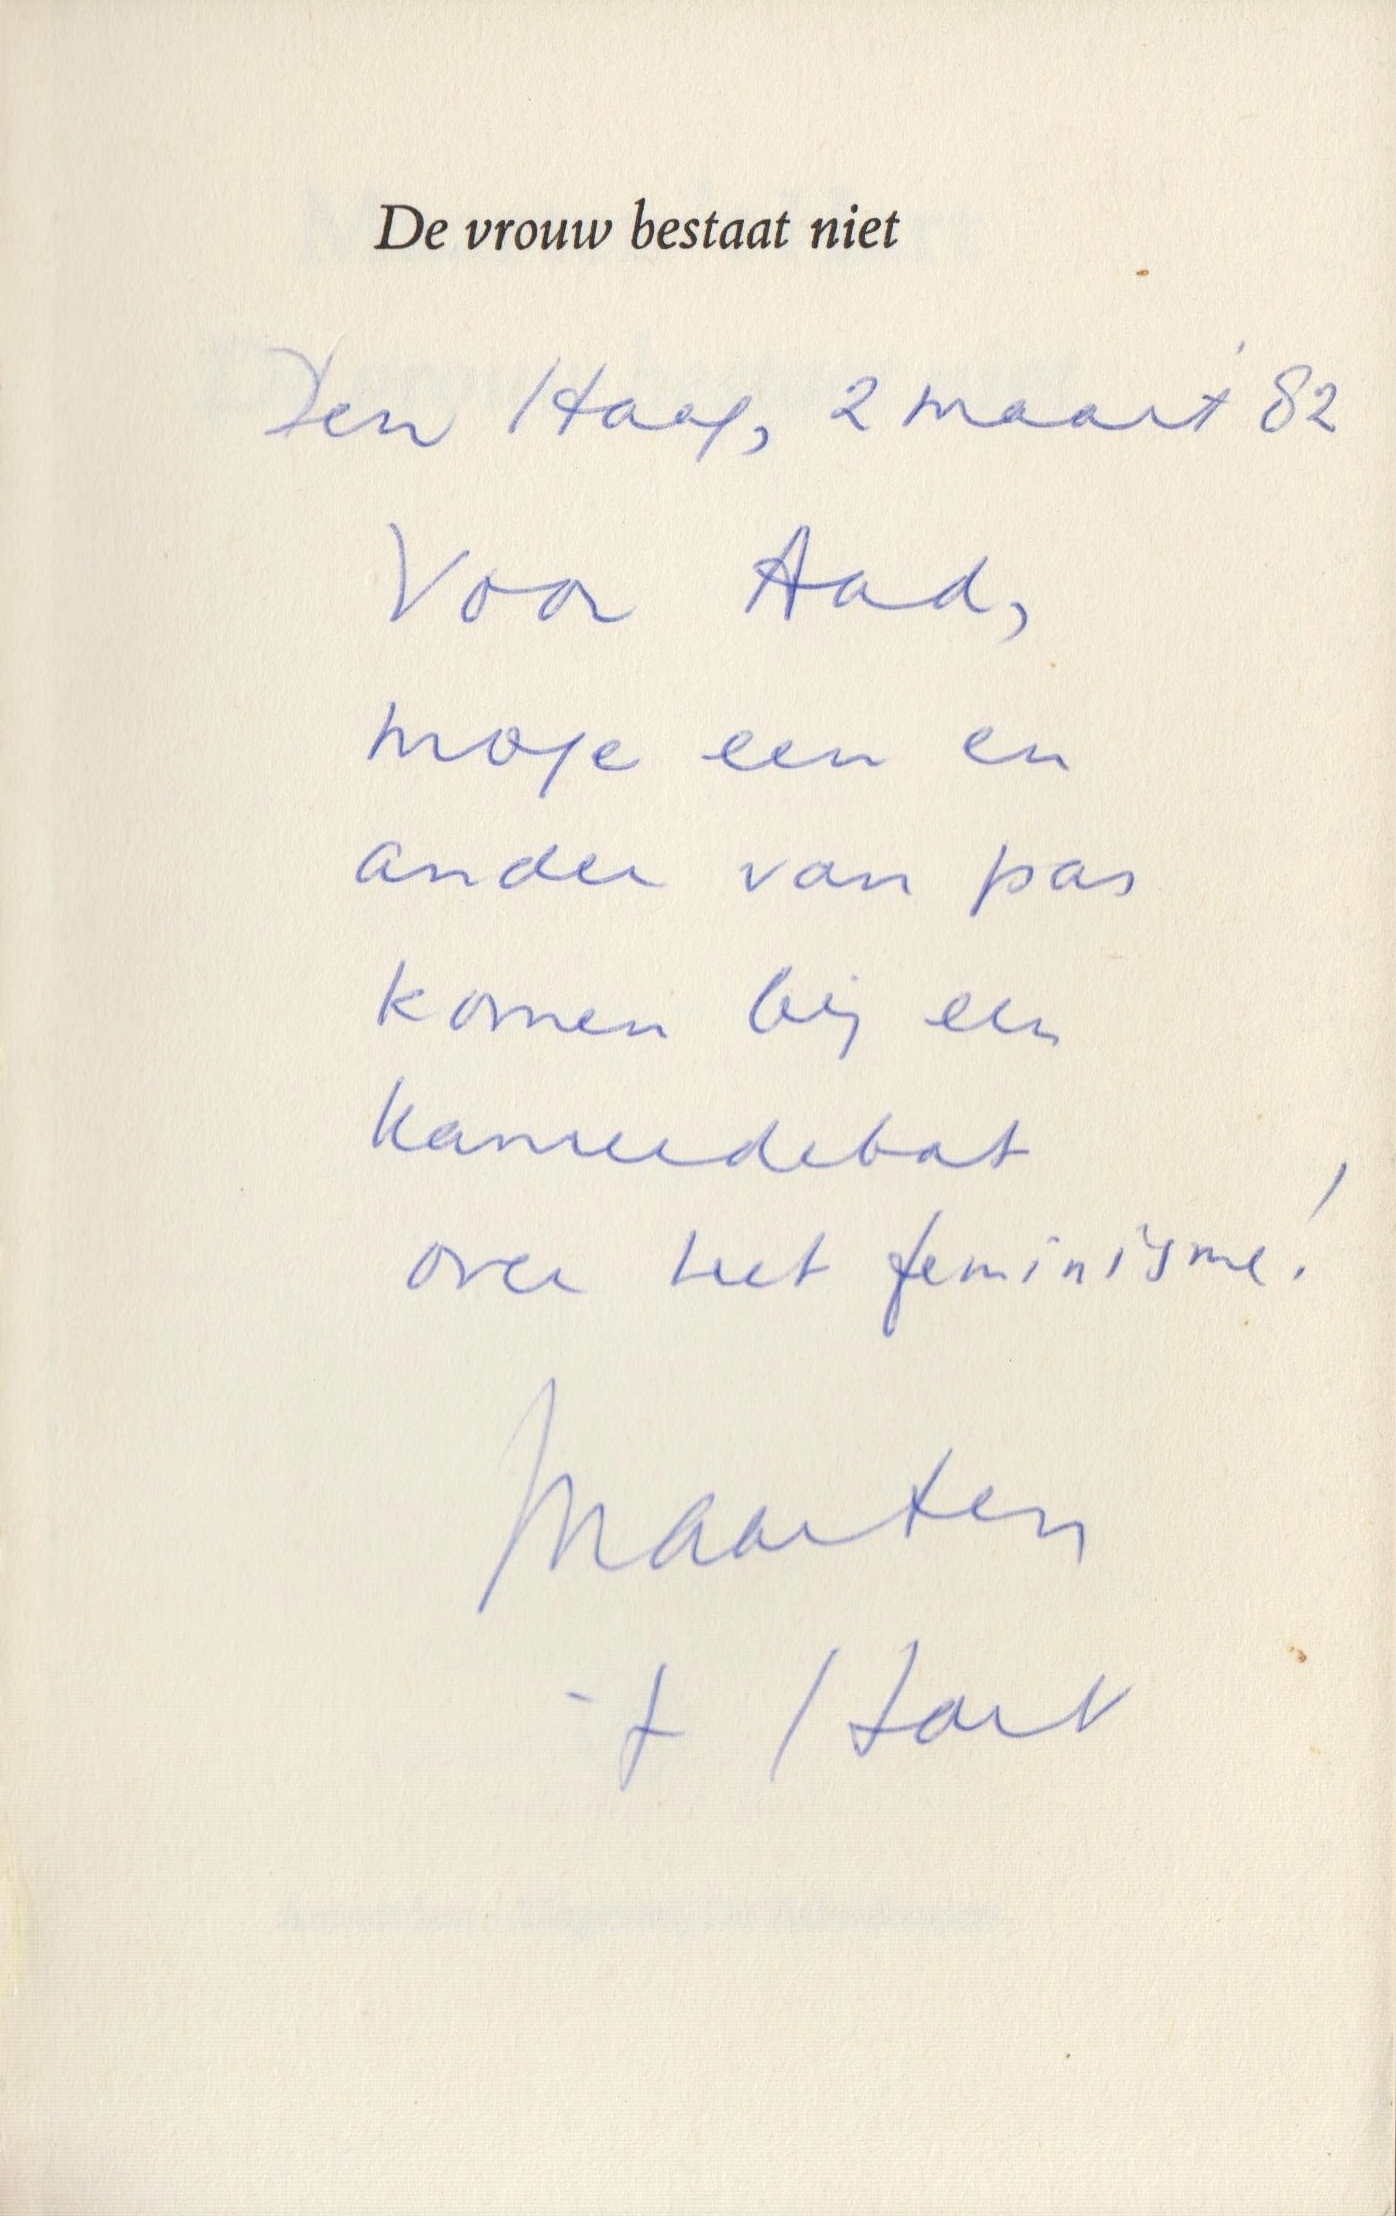 De vrouw bestaat niet
Den Haag, 2 maart '82
Voor Aad,
moge een en
ander van pas
komen bij een
kamerdebat
over het feminisme!
Maarten
't Hart